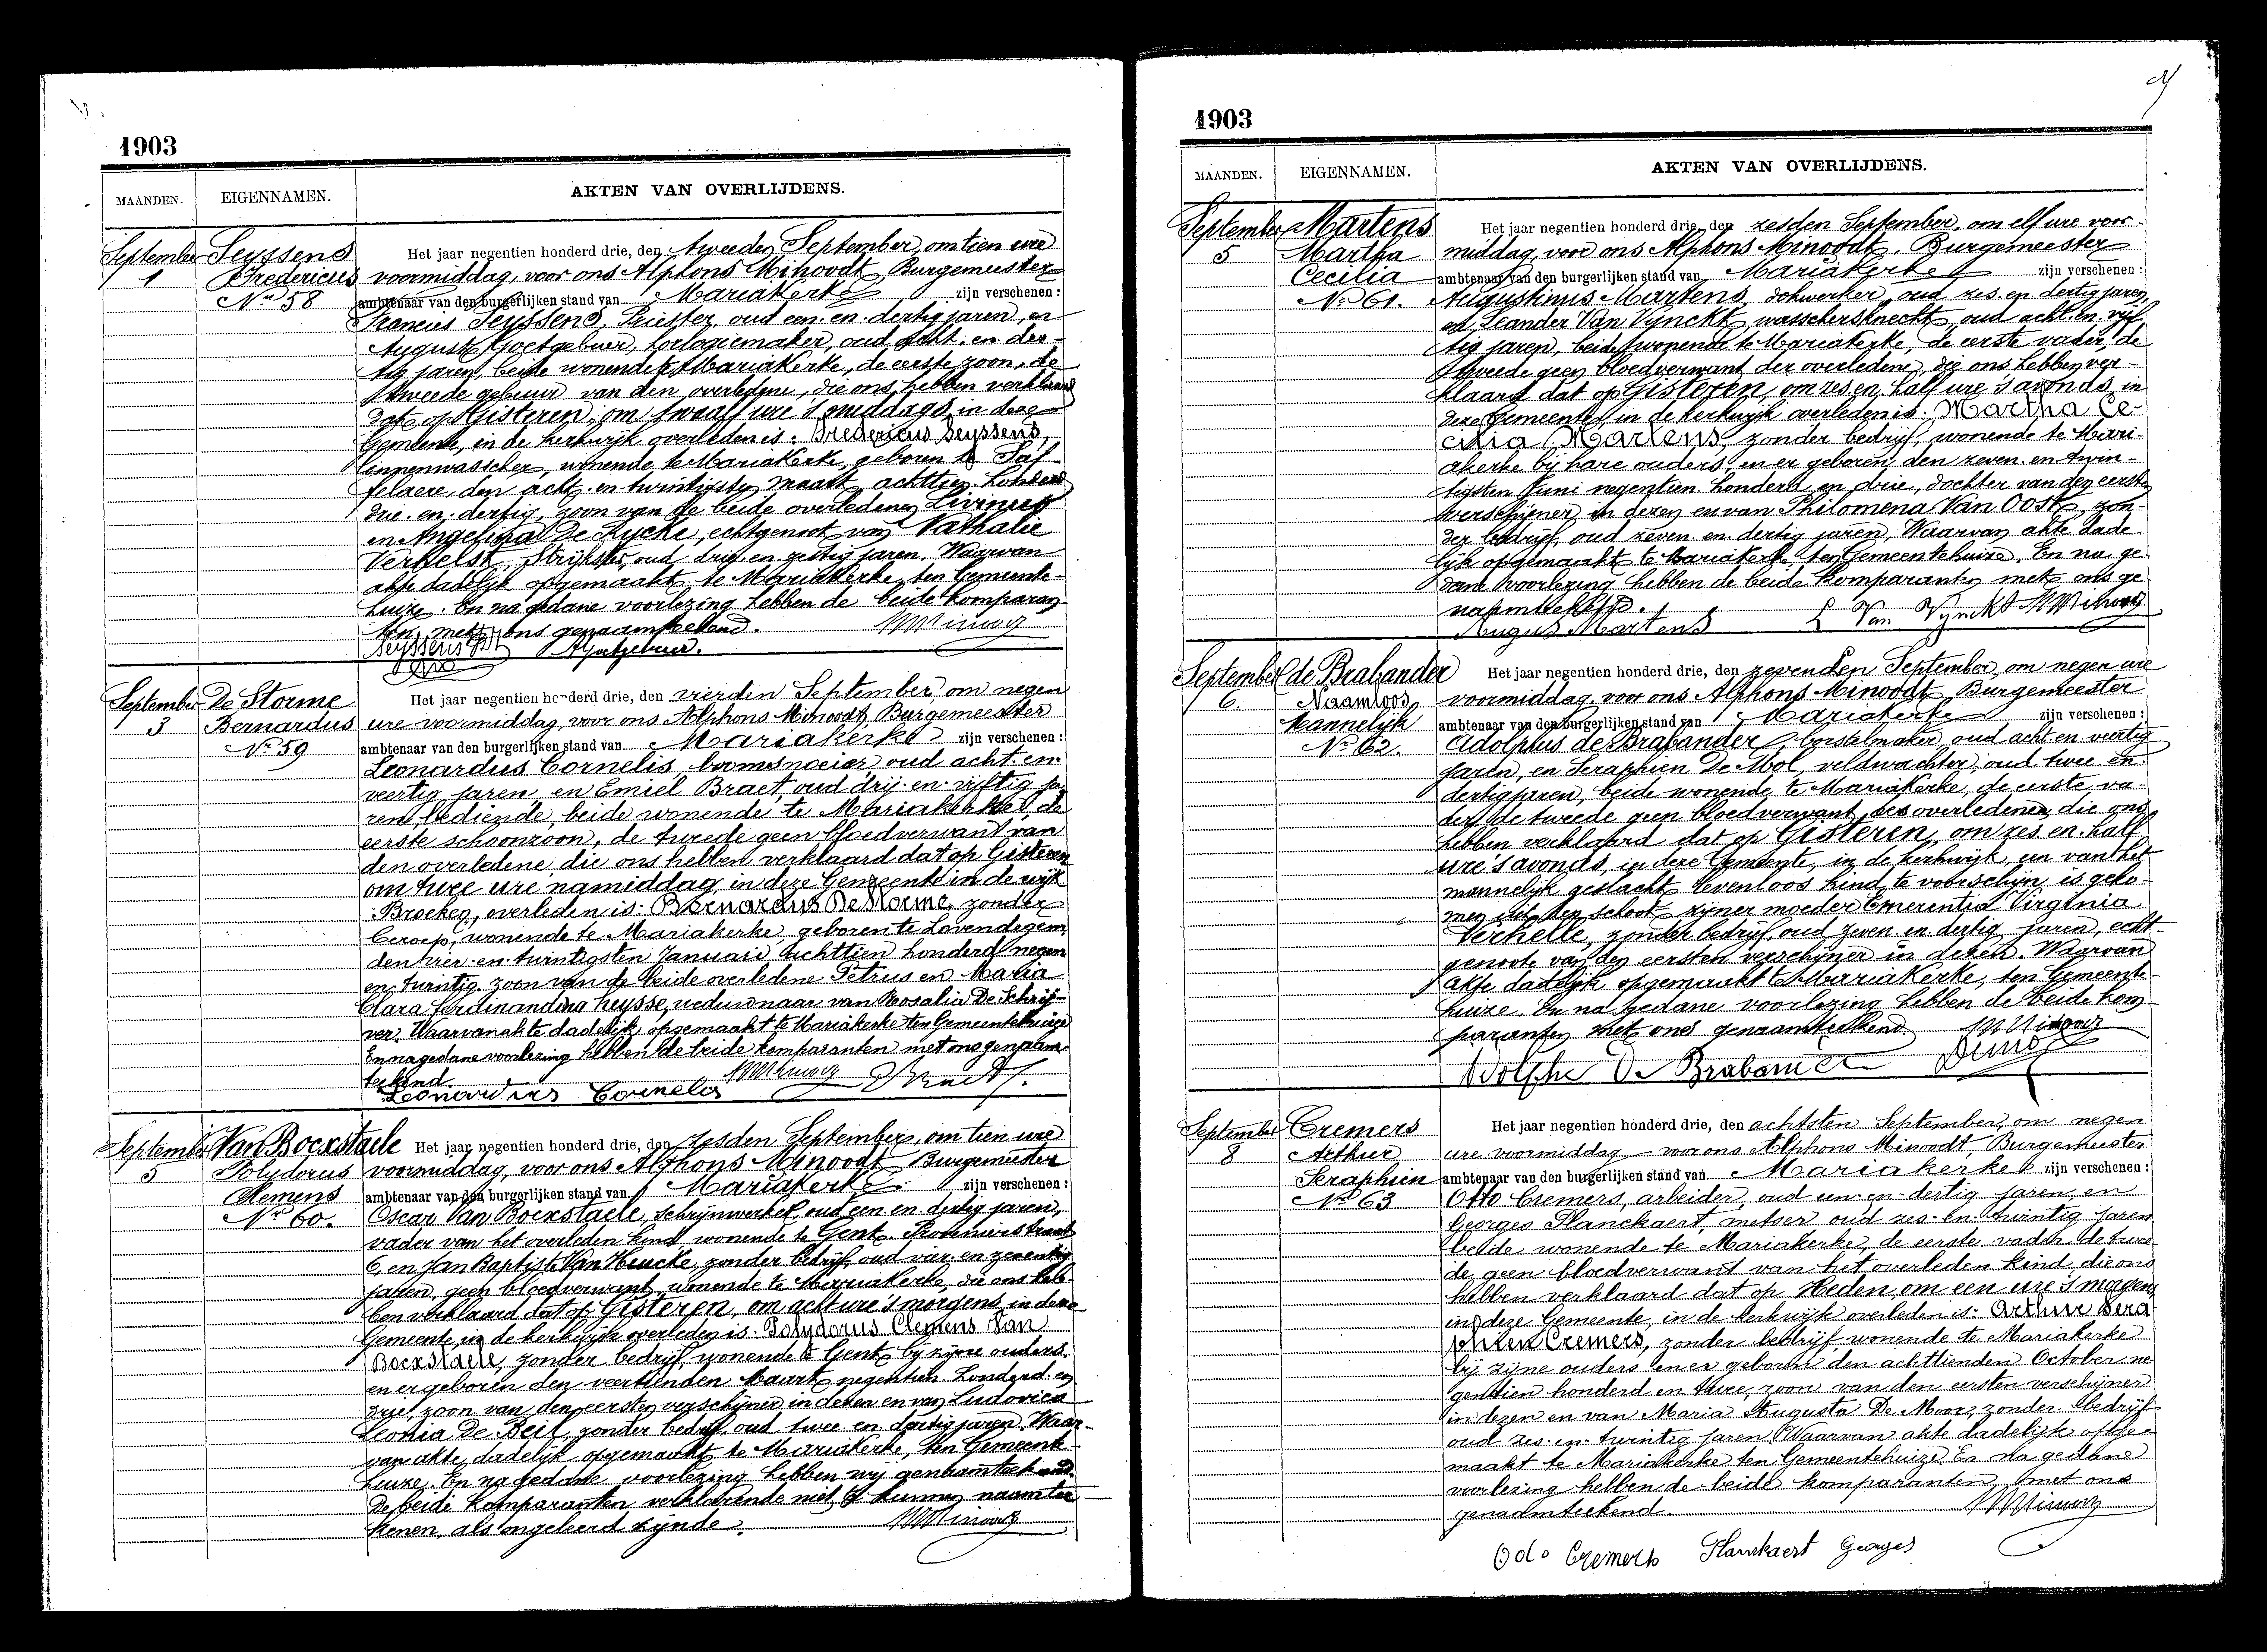 1903
MAANDEN. EIGENNAMEN. AKTEN VAN OVERLIJDENS.
September Seyssens Het jaar negentien honderd drie, den tweeden September, om tien ure
1 Fredericus voormiddag, voor ons Alphons Minoodt, Burgemeester
No 58 ambtenaar van den burgerlijken stand van Mariakerke zijn verschenen:
Francies Seyssens, oud een en dertig jaren, en
August Goetgebuer, horlogiemaker, oud acht en der-
tig jaren, beide wonende te Mariakerke, de eerste zoon, de
tweede gebuur van den overledene, die ons hebben verklaard
dat op Gisteren, om twaalf ure 's middags, in deze
Gemeente, in de kerkwijk overleden is: Fredericus Seyssens,
linnenwasscher, wonende te Mariakerke, geboren te Saf-
felaere, den acht en twintigsten maart achttien honderd
drie en dertig, zoon van de beide overledenen Livinus
en Angelina De Rycke, echtgenoot van Nathalie
Verhelst, strijkster, oud drij en zestig jaren. Waarvan
akte dadelijk opgemaakt te Mariakerke, ten Gemeente-
huize. En na gedane voorlezing hebben de beide komparan-
ten, met ons genaamteekend.
Seyssens A Goetgebuer.
September De Storme Het jaar negentien honderd drie, den vierden September, om negen
3 Bernardus ure voormiddag, voor ons Alphons Minoodt, Burgemeester
No 59 ambtenaar van den burgerlijken stand van Mariakerke zijn verschenen:
Leonardus Cornelis, boomsnoeier, oud acht en
veertig jaren en Emiel Braet oud drij en vijftig ja-
ren bediende, beide wonende te Mariakerke, de
eerste schoonzoon, de tweede geen bloedverwant van
den overledene, die ons hebben verklaard dat op Gisteren
om twee ure namiddag, in deze Gemeente in de wijk
Broeken, overleden is: Bernardus De Storme, zonder
beroep, wonende te Mariakerke, geboren te Lovendegem,
den vier en twintigsten Januari achttien honderd negen
en twintig, zoon van de beide overledene Petrus en Maria
Clara Ferdinandina Heysse, weduwnaar van Rosalia De Schrij-
ver. Waarvan akte dadelijk opgemaakt te Mariakerke ten Gemeentehuize
En na gedane voorlezing hebben de beide komparanten met ons genaam-
teekend.
Leonardus Cornelis EBraet
September Van Bockstaele Het jaar negentien honderd drie, den zesden September, om tien ure
5 Polydorus voormiddag, voor ons Alphons Minoodt Burgemeester
Clemens ambtenaar van den burgerlijken stand van Mariakerke zijn verschenen:
No 60. Oscar Van Bockstaele, schrijnwerker, oud een en dertig jaren,
vader van het overleden kind wonende te Gent
6, en Jan Baptist Van Heucke, zonder bedrijf, oud vier en zeventig
jaren, geen bloedverwant, wonende te Mariakerke, die ons heb-
ben verklaard dat op Gisteren, om acht ure 's morgens, in deze
Gemeente, in de kerkwijk overleden is: Polydorus Clemens Van
Bockstaele, zonder bedrijf, wonende te Gent bij zijne ouders,
en er geboren den veertienden Maart negentien honderd en
drie, zoon van den eersten verschijner in dezen en van Ludovica
Leonia De Beil, zonder bedrijf, oud twee en dertig jaren. Waar-
van akte dadelijk opgemaakt te Mariakerke, ten Gemeente
huize. En na gedane voorlezing hebben wij genaamteekend.
De beide komparanten verklarende niet te kunnen naamtee-
kenen, als ongeleerd zijnde.
1903
MAANDEN. EIGENNAMEN. AKTEN VAN OVERLIJDENS.
September Martens Het jaar negentien honderd drie, den zesden September, om elf ure voor-
5 Martha middag, voor ons Alphons Minoodt, Burgemeester
Cecilia ambtenaar van den burgerlijken stand van Mariakerke zijn verschenen:
No 61. Augustinus Martens, dokwerker, oud zes en dertig jaren,
en Leander Van Vynckt, wasschersknecht, oud acht en vijf-
tig jaren, beide wonende te Mariakerke, de eerste vader, de
tweede geen bloedverwant der overledene, die ons hebben ver-
klaard dat op Gisteren, om zes en half ure 's avonds, in
deze Gemeente, in de kerkwijk overleden is: Martha Ce-
cilia Martens, zonder bedrijf, wonende te Mari-
akerke bij hare ouders, en er geboren den zeven en twin-
tigsten Juni negentien honderd en drie, dochter van den eersten
verschijner in dezen en van Philomena Van Oost, zon-
der bedrijf, oud zeven en dertig jaren. Waarvan akte dade-
lijk opgemaakt te Mariakerke, ten Gemeentehuize. En na ge-
dane voorlezing hebben de beide komparanten met ons ge-
naamteekend.
Augus Martens L Van Vynckt AMinoodt
September de Brabander Het jaar negentien honderd drie, den zevenden September, om negen ure
6. Naamloos voormiddag, voor ons Alphons Minoodt, Burgemeester
Mannelijk ambtenaar van den burgerlijken stand van Mariakerke zijn verschenen:
No 62. Adolphus de Brabander, borstelmaker, oud acht en veertig
jaren, en Seraphien De Mol, veldwachter, oud twee en
dertig jaren, beide wonende te Mariakerke, de eerste va-
der, de tweede geen bloedverwant des overledenen, die ons
hebben verklaard dat op Gisteren, om zes en half
ure 's avonds, in deze Gemeente, in de kerkwijk, een van het
mannelijk geslacht levenloos kind te voorschijn is geko-
men uit den schoot zijner moeder Emerentia Virginia
Verhelle, zonder bedrijf, oud zeven en dertig jaren, echt-
genoote van den eersten verschijner in dezen. Waarvan
akte dadelijk opgemaakt te Mariakerke, ten Gemeente-
huize. En na gedane voorlezing hebben de beide kom-
paranten met ons genaamteekend.
Adolphe De Brabander Demol
September Cremers Het jaar negentien honderd drie, den achtsten September, om negen
8 Arthur ure voormiddag voor ons Alphons Minoodt, Burgemeester
Seraphien ambtenaar van den burgerlijken stand van Mariakerke zijn verschenen:
No 63 Otto Cremers, arbeider, oud een en dertig jaren, en
Georges Planckaert, metser oud zes en twintig jaren
beide wonende te Mariakerke, de eerste vader de twee-
de geen bloedverwant van het overleden kind, die ons
hebben verklaard dat op Heden, om een ure 's morgens
in deze Gemeente, in de kerkwijk overleden is: Arthur Sera-
phien Cremers, zonder bedrijf wonende te Mariakerke
bij zijne ouders en er geboren den achttienden October ne-
gentien honderd en twee, zoon van den eersten verschijner
in dezen en van Maria Augusta De Moor, zonder bedrijf
oud zes en twintig jaren. Waarvan akte dadelijk opge-
maakt te Mariakerke ten Gemeentehuize. En na gedane
voorlezing hebben de beide komparanten, met ons
genaamteekend.
Odo Cremers Planckaert Georges